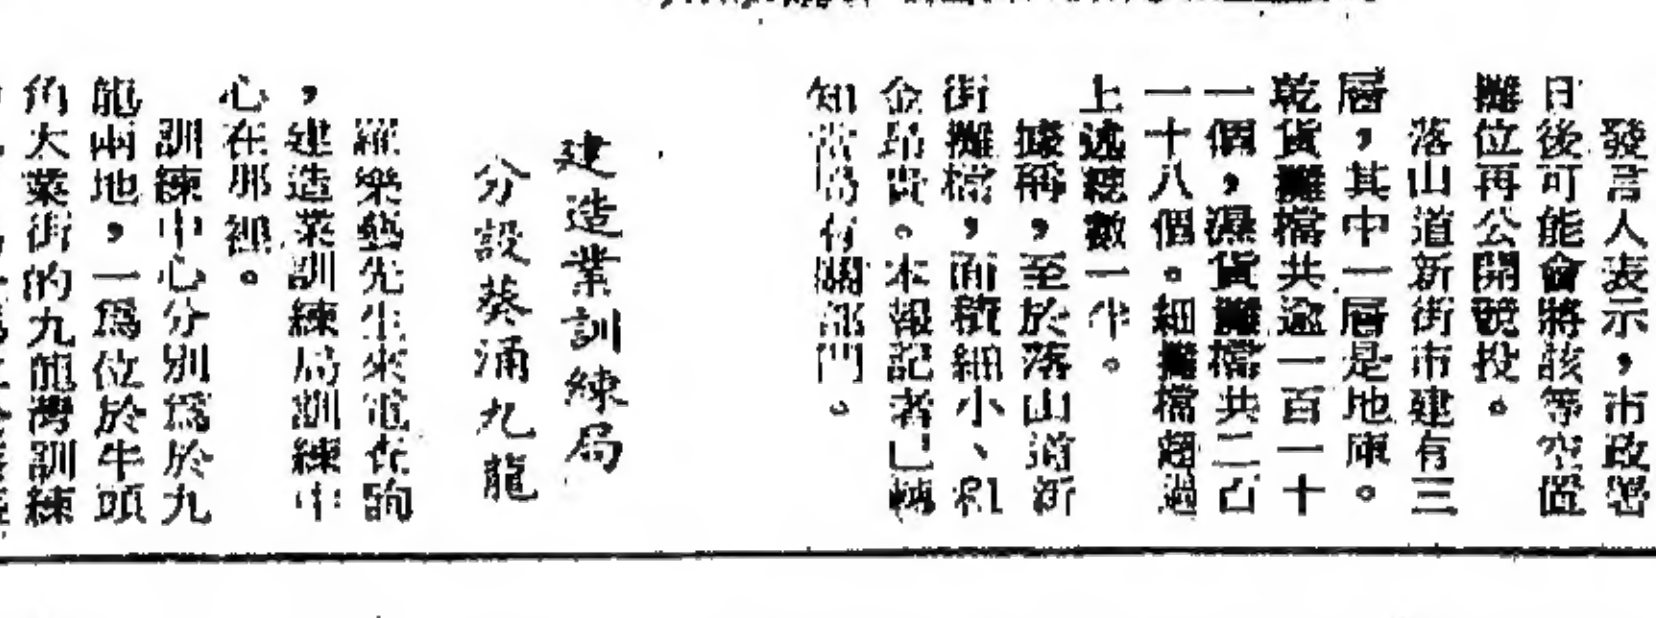 發言人表示，市政署
日後可能會將該等空置
攤位再公開競投。
落山道新街市建有三
層，其中一層是地庫。
乾貨攤檔共逾一百一十
一個，濕貨攤檔共二百
一十八個。細攤檔超過
上述總數一半。
據稱，至於落山道新
街攤檔，面積細小、租
金昂貴。本報記者已轉
知當局有關部門。
建造業訓練局
分設葵涌九龍
羅樂藝先生來電查詢
，建造業訓練局訓練中
心在那裡。
訓練中心分別為於九
龍兩地，一為位於牛頭
角大業街的九龍灣訓練